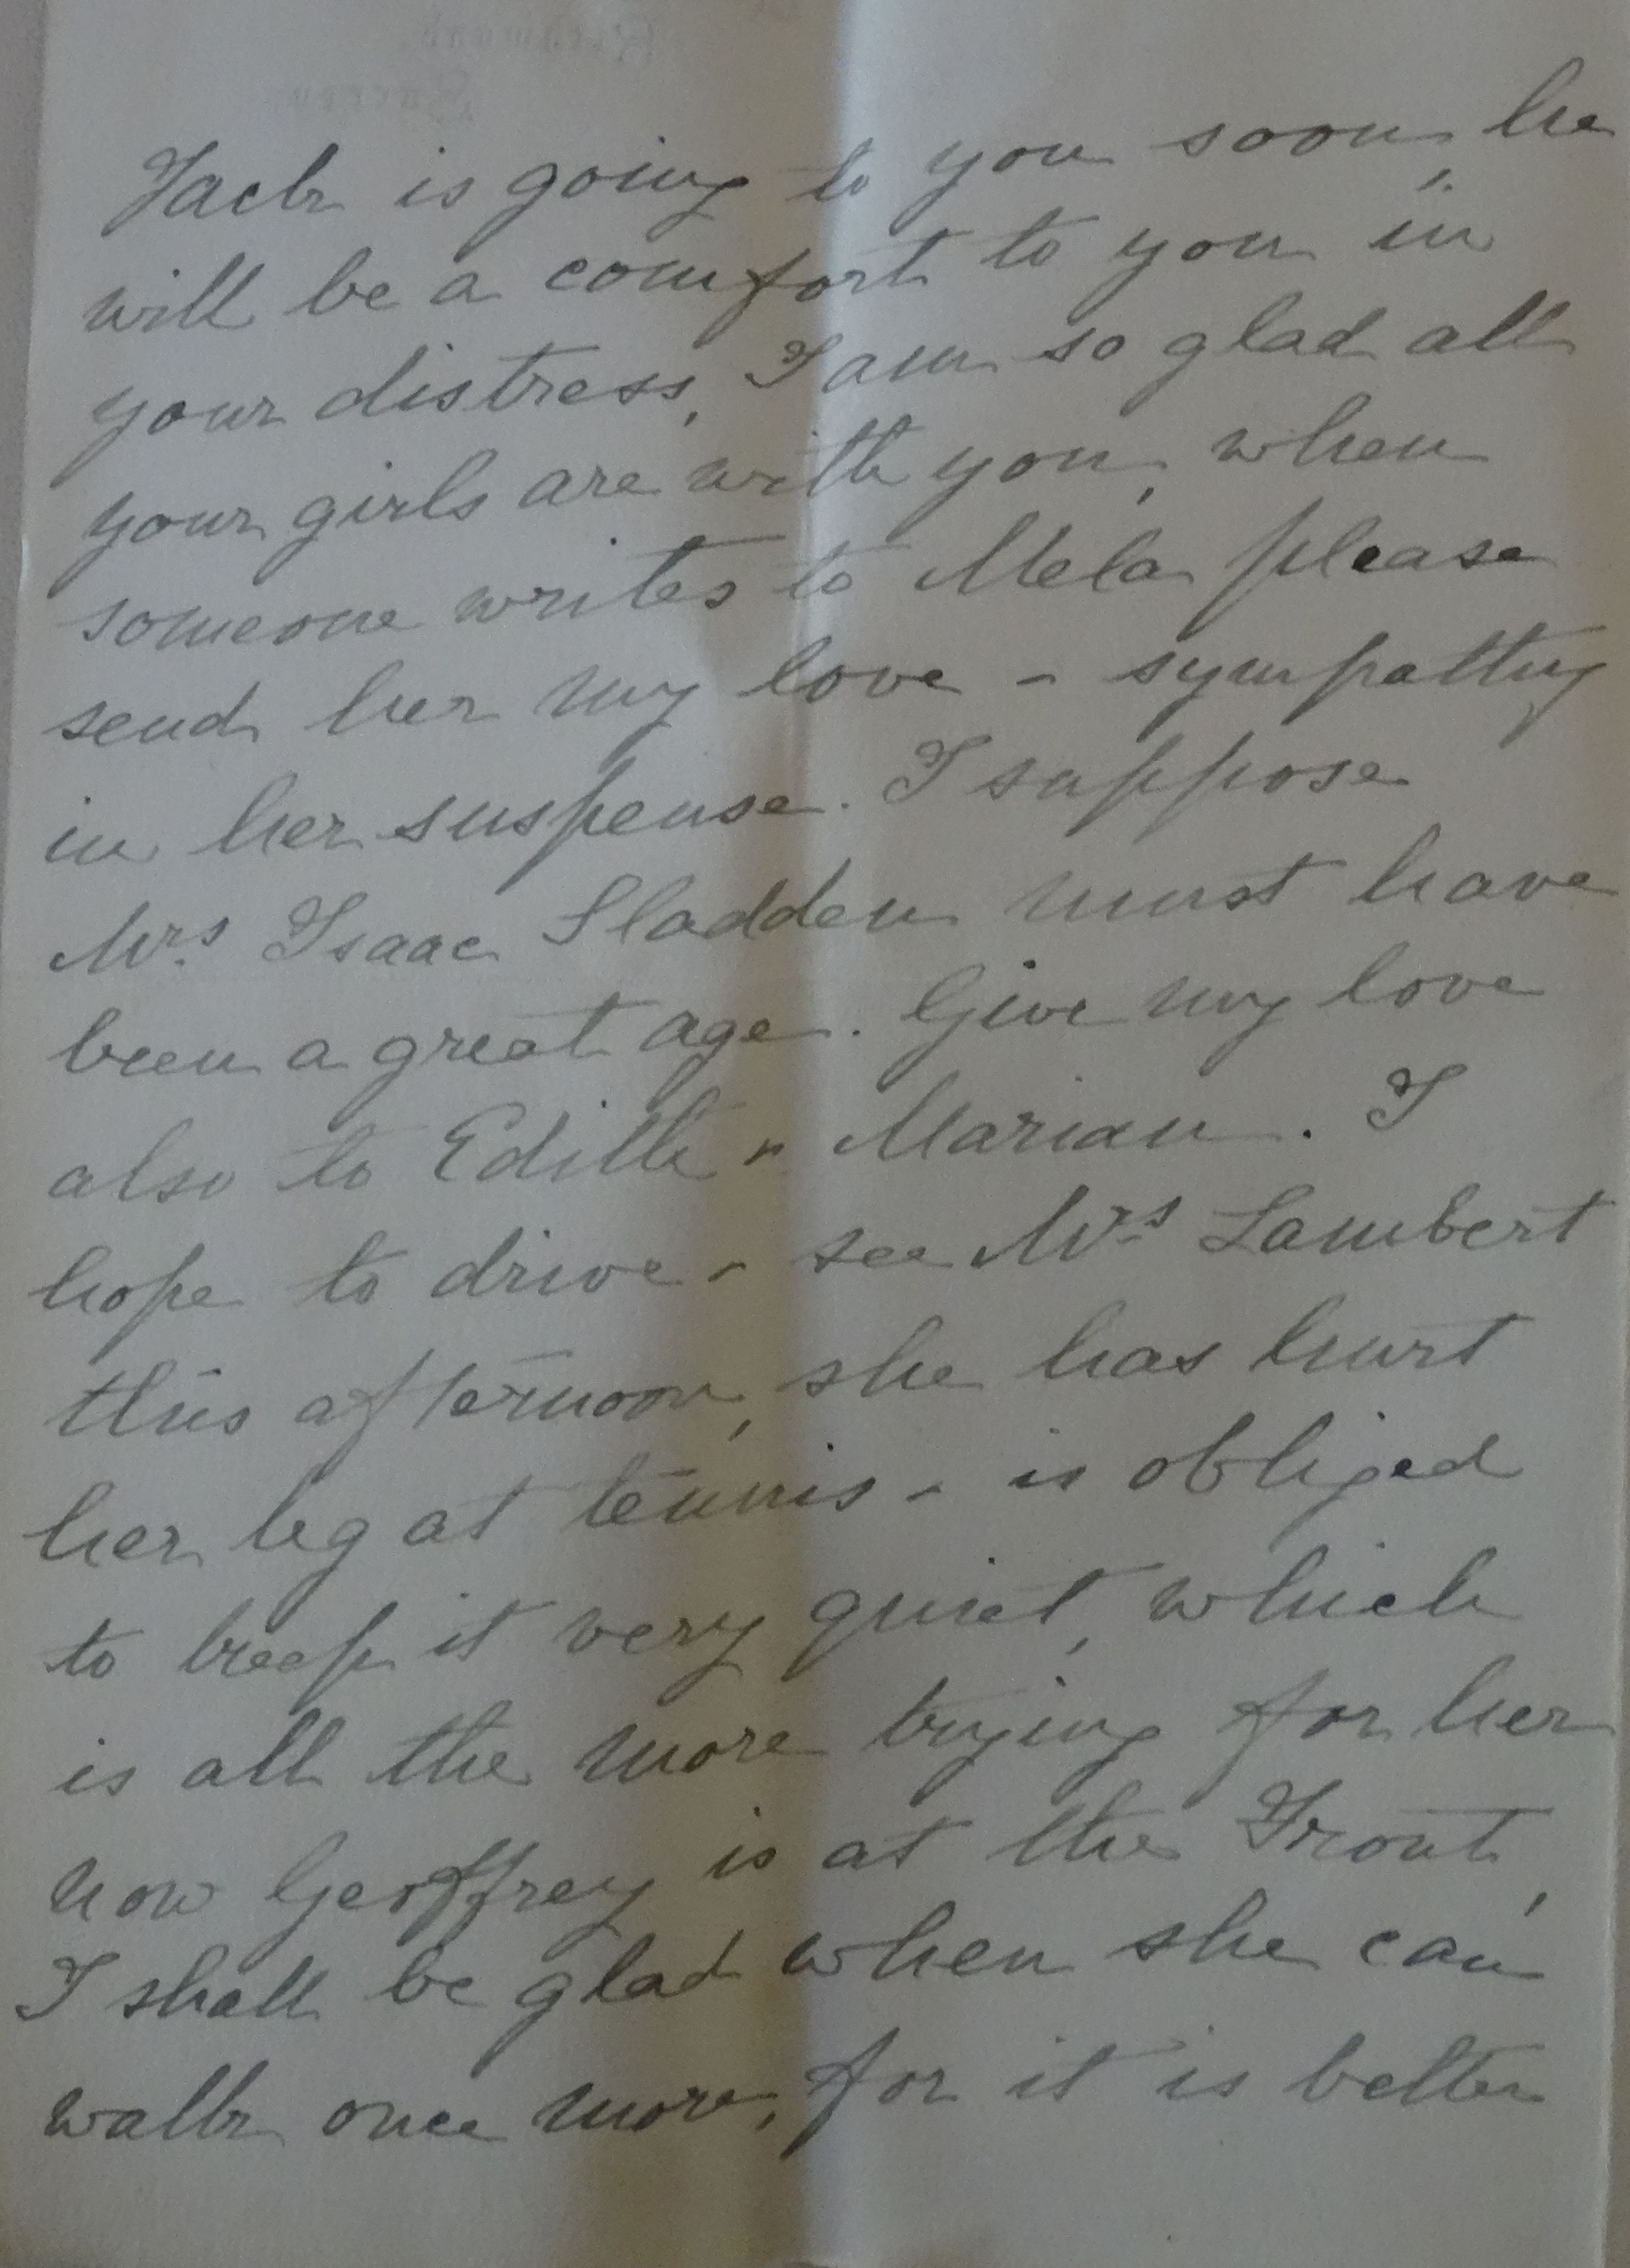 Jack is going to you soon, he
will be a comfort to you in
your distress, I am so glad all
your girls are with you, when
someone writes to Mela please
send her my love - sympathy
in her suspense. I suppose
Mrs Isaac Sladden must have
been a great age. Give my love
also to Edith & Marian. I
hope to drive - see Mrs Lambert
this afternoon, she has hurt
her leg at tennis - is obliged
to keep it very quiet, which
is all the more trying for her
now Geoffrey is at the Front,
I shall be glad when she can
walk once more, for it is better